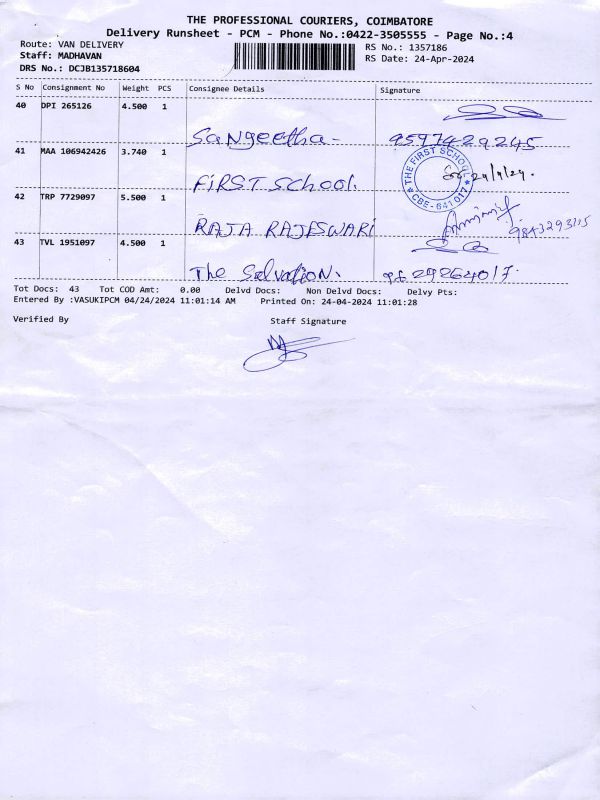 THE PROFESSIONAL COURIERS, COIMBATORE
Delivery Runsheet - PCM - Phone No.:0422-3505555 - Page No.:4
Route: VAN DELIVERY RS No.: 1357186
Staff: MADHAVAN RS Date: 24-Apr-2024
DRS No.: DCJB135718604
S No Consignment No Weight PCS Consignee Details Signature
40 DPI 265126 4.500 1
Sangeetha - 9597429245
41 MAA 106942426 3.740 1
THE FIRST SCHOOL
CBE - 641 017
24/4/24.
FiRST School.
42 TRP 7729097 5.500 1
RAJA RAJESWARI
43 TVL 1951097 4.500 1
The Salvation.
Tot Docs: 43 Tot COD Amt: 0.00 Delvd Docs: Non Delvd Docs: Delvy Pts:
Entered By :VASUKIPCM 04/24/2024 11:01:14 AM Printed On: 24-04-2024 11:01:28
Verified By Staff Signature